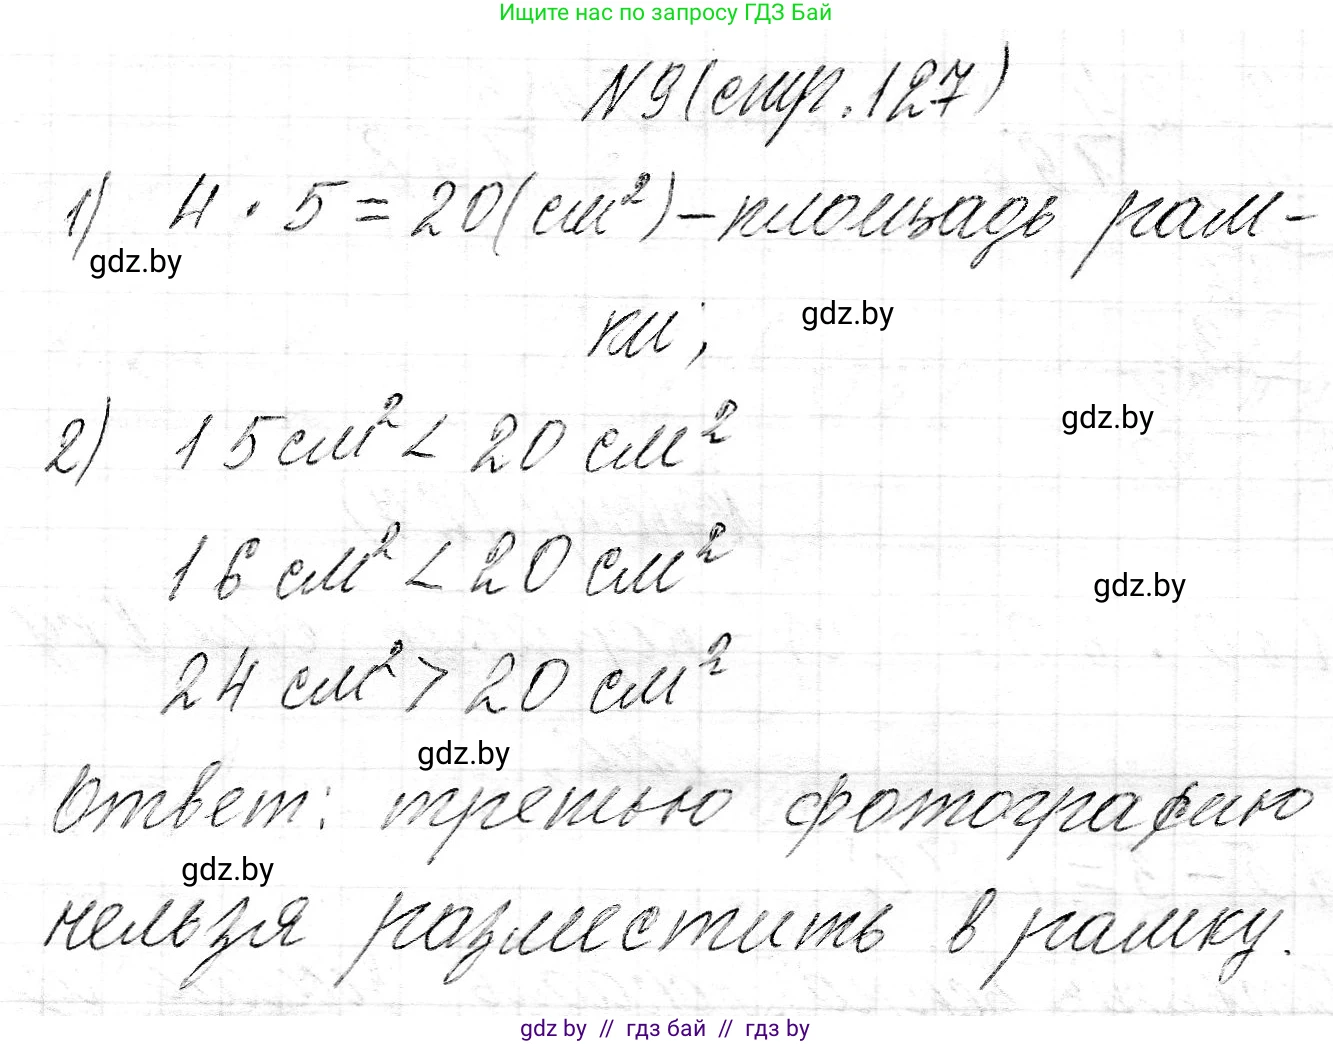 Ищите нас по запросу ГДЗ Бай
N9(стр.127)
1) 4 · 5 = 20(см²) – площадь рам-
gdz.by
ки;
gdz.by
gdz.by
2) 15 см² < 20 см²
16 см² < 20 см²
gdz.by
24 см² > 20 см²
gdz.by
Ответ: третью фотографию
gdz.by
нельзя разместить в рамку.
gdz by // гдз бай // гдз by